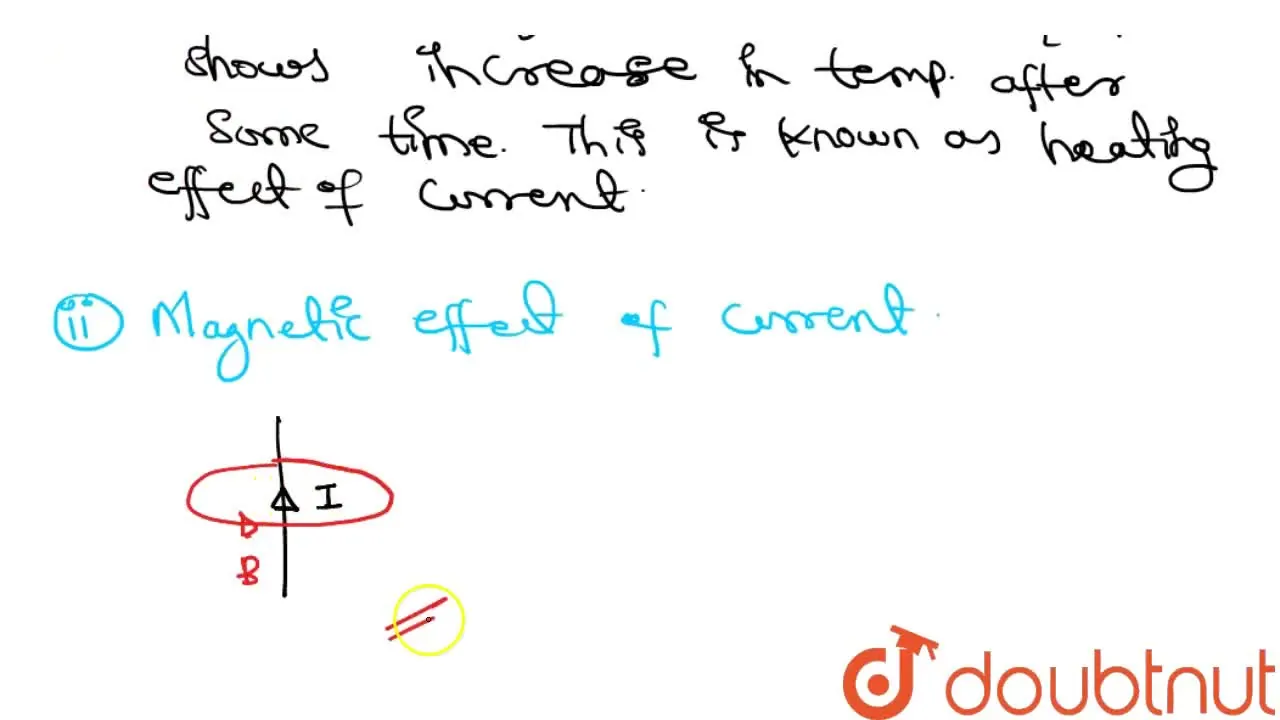 shows increase in temp. after
some time. This is known as heating
effect of current.
ii Magnetic effect of current.
I
B
doubtnut